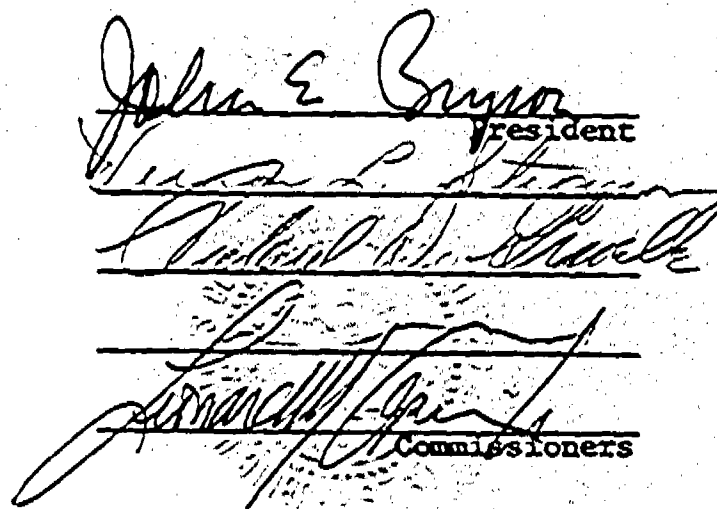 John E Bryson
President
Vernon L. Sturgeon
Richard D. Gravelle
Leonard M. Grimes
Commissioners